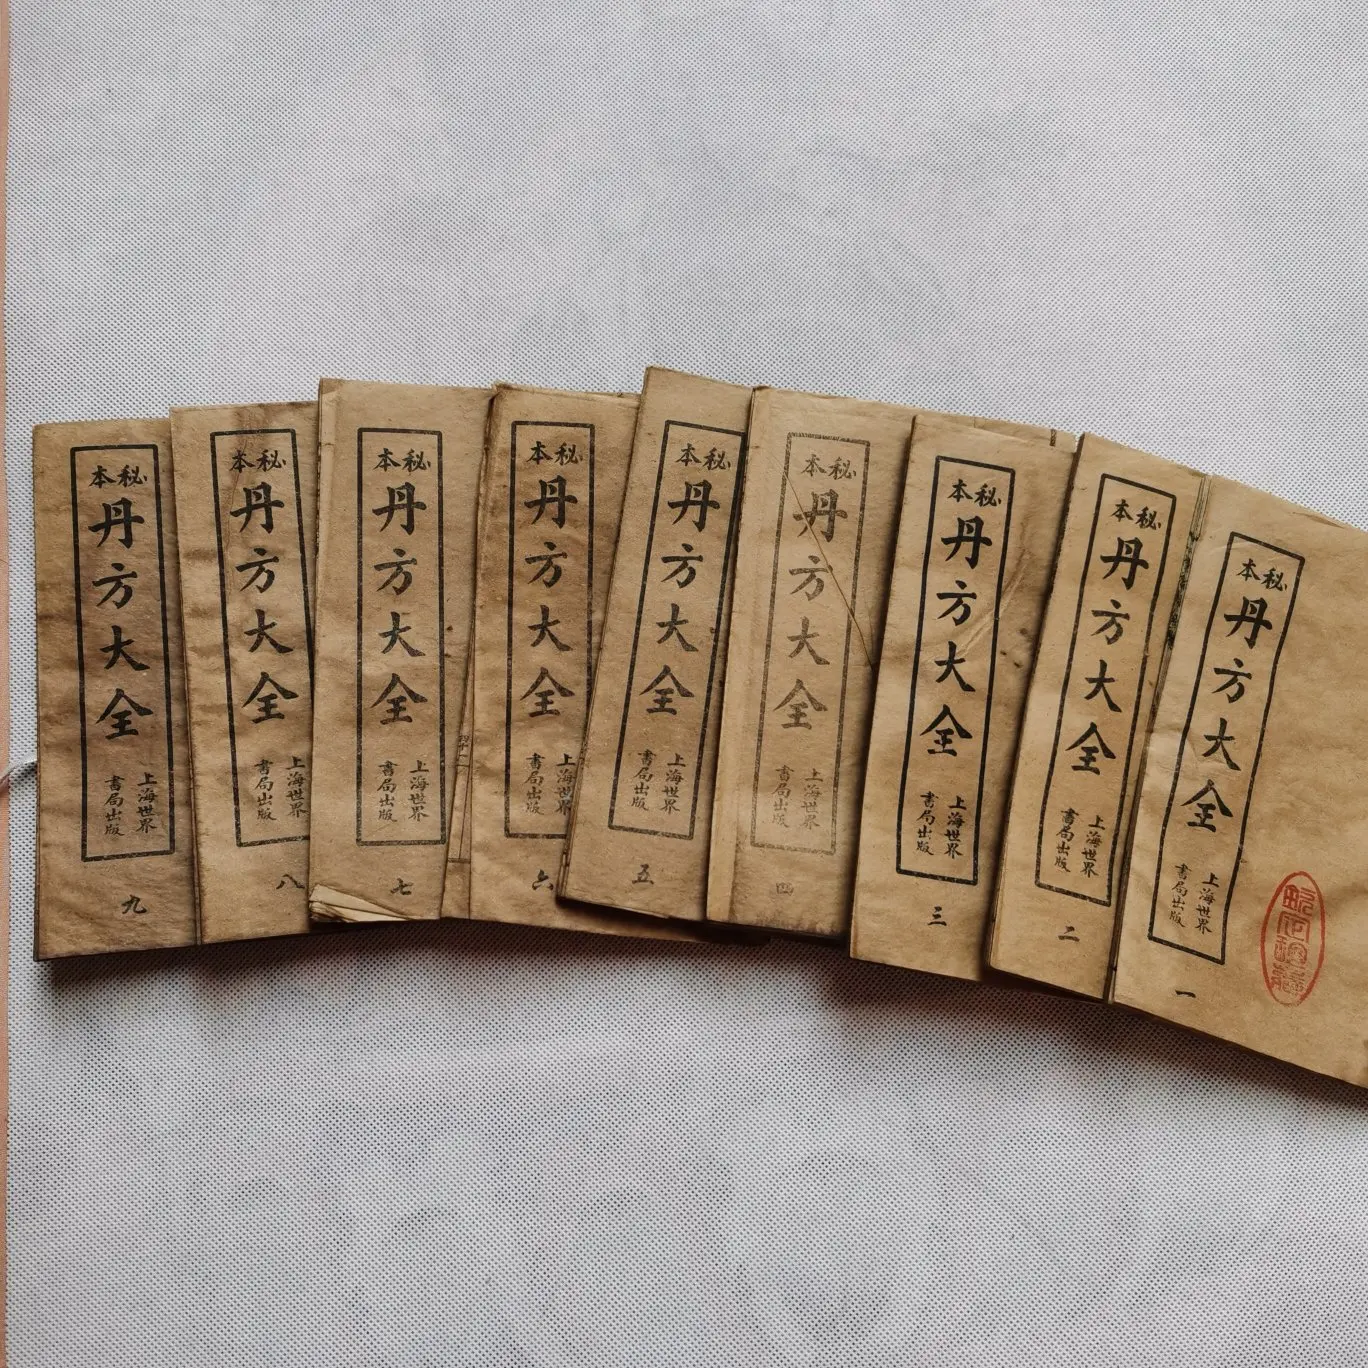 秘本
丹方大全
上海世界
書局出版
一
秘本
丹方大全
上海世界
書局出版
二
秘本
丹方大全
上海世界
書局出版
三
秘本
丹方大全
上海世界
書局出版
四
秘本
丹方大全
上海世界
書局出版
五
秘本
丹方大全
上海世界
書局出版
六
秘本
丹方大全
上海世界
書局出版
七
秘本
丹方大全
上海世界
書局出版
八
秘本
丹方大全
上海世界
書局出版
九